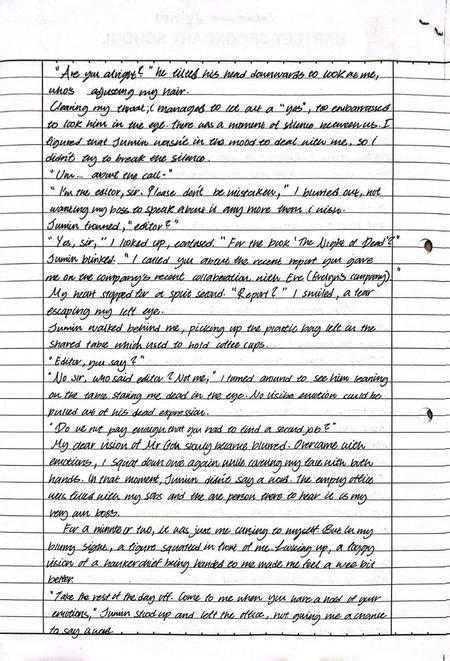 BARTLEY SECONDARY SCHOOL
"Are you alright?" he tilted his head downwards to look at me,
who's adjusting my hair.
Clearing my throat, i managed to let out a "yes", too embarrassed
to look him in the eye. There was a moment of silence between us. I
figured that Jumin wasn't in the mood to deal with me, so i
didn't try to break the silence.
"Um... about the call-"
"I'm the editor, sir. Please don't be mistaken," I blurted out, not
wanting my boss to speak about it any more than i wish.
Jumin frowned, "editor?"
"Yes, sir," I looked up, confused. "For the book 'The Night of Dead'?"
Jumin blinked. "I called you about the recent report you gave
me on the company's recent collaboration with Eve (Evelyn's company)."
My heart stopped for a split second. "Report?" I smiled, a tear
escaping my left eye.
Jumin walked behind me, picking up the plastic bag left on the
shared table which used to hold coffee cups.
"Editor, you say?"
"No sir, who said editor? Not me," I turned around to see him leaning
on the table staring me dead in the eye. No visible emotion could be
pulled out of his dead expression.
"Do we not pay enough that you had to find a second job?"
My clear vision of Mr Goh slowly became blurred. Overcame with
emotions, I squat down one again while covering my face with both
hands. In that moment, Jumin didn't say a word. The empty office
was filled with my sobs and the one person there to hear it is my
very own boss.
For a minute or two, it was just me cursing to myself. But in my
blurry sight, a figure squatted in front of me. Looking up, a foggy
vision of a hankerchief being handed to me made me feel a wee bit
better.
"Take the rest of the day off. Come to me when you have a hold of your
emotions," Jumin stood up and left the office, not giving me a chance
to say a word.